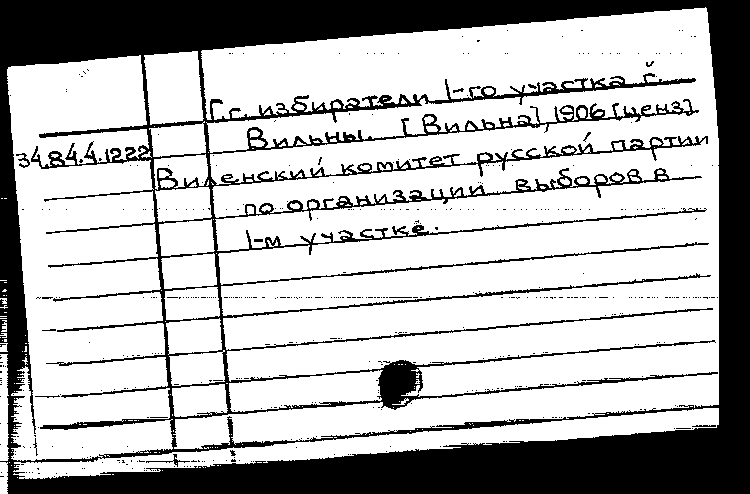 Г.г. избиратели 1-го участка г.
Вильны. [Вильна], 1906 [ценз].
34.84.4.1222
Виленский комитет русской партии
по организации выборов в
1-м участке.